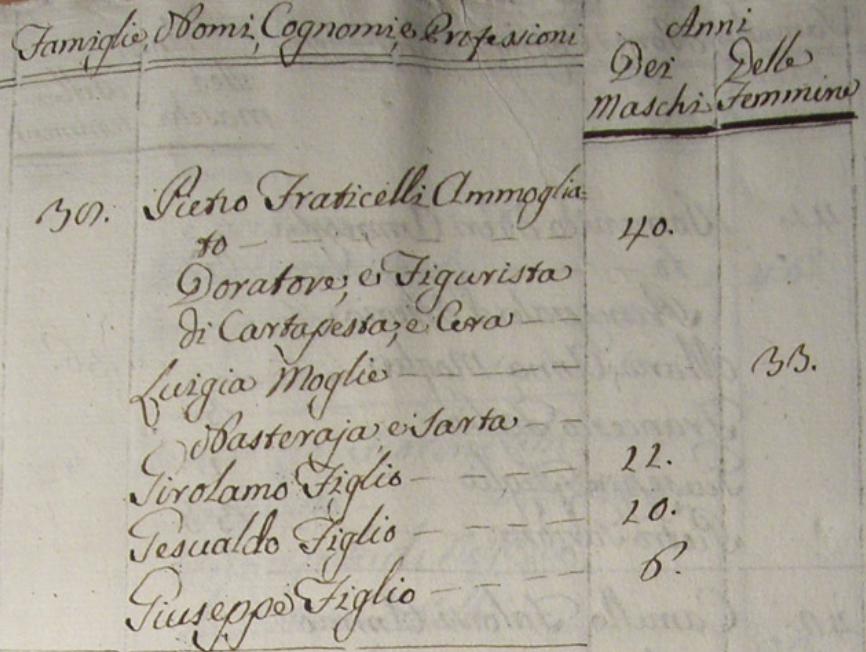 Famiglie, Nomi, Cognomi, e Professioni
Anni
Dei Maschi
Delle Femmine
38. Pietro Fraticelli Ammoglia=
to 40.
Doratore, e Figurista
di Cartapesta, e Cera
Luigia Moglie 33.
Nasteraja, e Sarta
Girolamo Figlio 11.
Gesualdo Figlio 10.
Giuseppe Figlio 6.